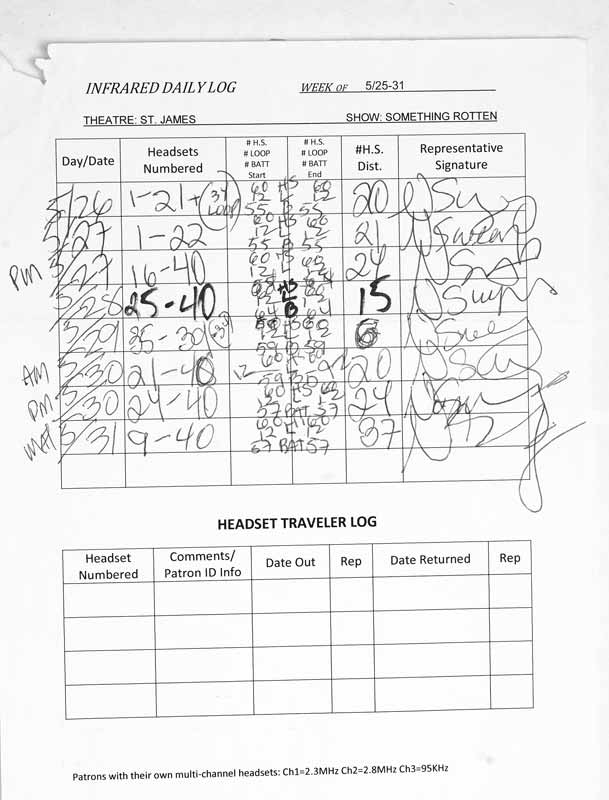 INFRARED DAILY LOG WEEK OF 5/25-31
THEATRE: ST. JAMES SHOW: SOMETHING ROTTEN
Day/Date Headsets Numbered # H.S. # LOOP # BATT Start # H.S. # LOOP # BATT End #H.S. Dist. Representative Signature
5/26 1-21+ 34 LOOP 60 HS 60 12 L 12 55 B 55 20
5/27 1-22 60 HS 60 12 L 12 55 B 55 21
PM 5/27 16-40 60 HS 60 12 L 12 24
5/28 25-40 HS L B 15
5/29 25-30 59 59 6
AM 5/30 21-40 12 12 59 20
PM 5/30 24-40 60 60 12 12 57 BAT 57 24
MAT 5/31 9-40 12 12 57 BAT 57 37
HEADSET TRAVELER LOG
Headset Numbered Comments/ Patron ID Info Date Out Rep Date Returned Rep
Patrons with their own multi-channel headsets: Ch1=2.3MHz Ch2=2.8MHz Ch3=95KHz